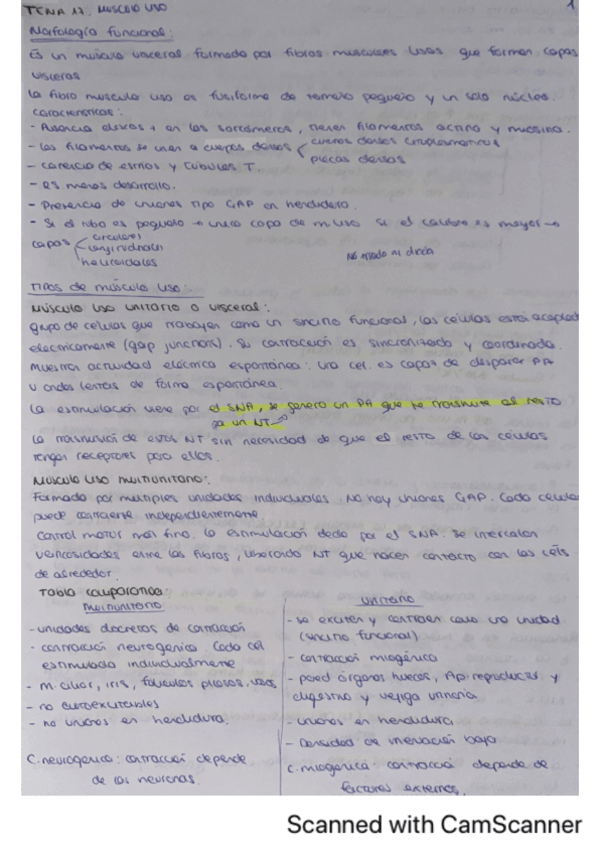 TEMA 17. MUSCULO LISO
1
Morfología funcional:
Es un músculo visceral formado por fibras musculares lisas que forman capas
visceras
La fibra muscular lisa es fusiforme de tamaño pequeño y un solo núcleo.
características:
- Ausencia sarcómeros, tienen filamentos actina y miosina.
- Los filamentos se unen a cuerpos densos cuerpos densos citoplasmáticos
placas densas
- carencia de estrías y túbulos T.
- es menos desarrollo.
- Presencia de uniones tipo GAP en hendidura.
- Si el tubo es pequeño → única capa de m. liso si el calibre es mayor →
capas circulares
longitudinales
No estado ni dirección
Tipos de músculo liso:
Músculo liso unitario o visceral:
grupo de células que trabajan como un sincitio funcional, las células están acopladas
electricamente (gap junctions). Su contracción es sincronizada y coordinada.
Muestran actividad eléctrica espontánea: una cel. es capaz de disparar PA
u ondas lentas de forma espontánea.
La estimulación viene por el SNA, se genera un PA que se transmite al resto
por un NT
La transmisión de estos NT sin necesidad de que el resto de las células
tengan receptores para ellos.
Músculo liso multiunitario:
Formado por multiples unidades individuales. No hay uniones GAP. Cada célula
puede contraerse independientemente
control motor más fino. La estimulación dada por el SNA. Se intercalan
varicosidades entre las fibras, liberando NT que hacen contacto con las céls
de alrededor.
Tabla comparativa:
multiunitario
- unidades discretas de contracción
- contracción neurogénica. Cada cel
estimulada individualmente
- m. ciliar, iris, folículos pilosos, vasos
- no autoexcitables
- no uniones en hendidura.
C. neurogénica: contracción depende
de las neuronas.
unitario
- se excitan y contraen como una unidad
(sincitio funcional)
- contracción miogénica
- pared órganos huecos, Ap. reproductor y
digestivo y vejiga urinaria
- uniones en hendidura
- Densidad de inervación baja
C. miogénica: contracción depende de
factores externos.
Scanned with CamScanner